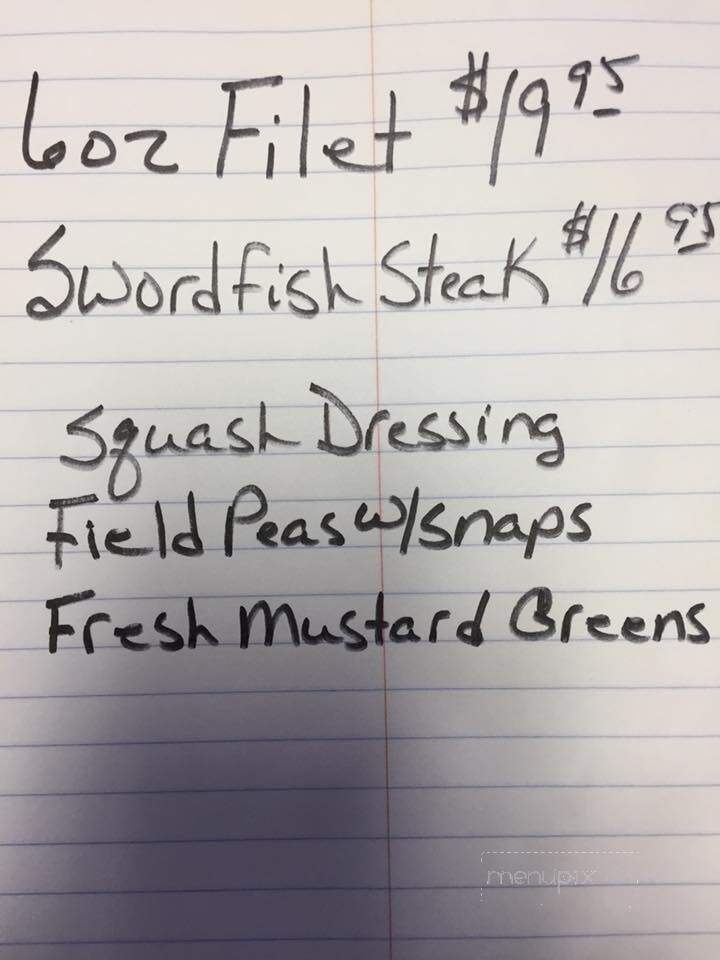 6oz Filet $19.95
Swordfish Steak $16.95
Squash Dressing
Field Peas w/snaps
Fresh Mustard Greens
menupix